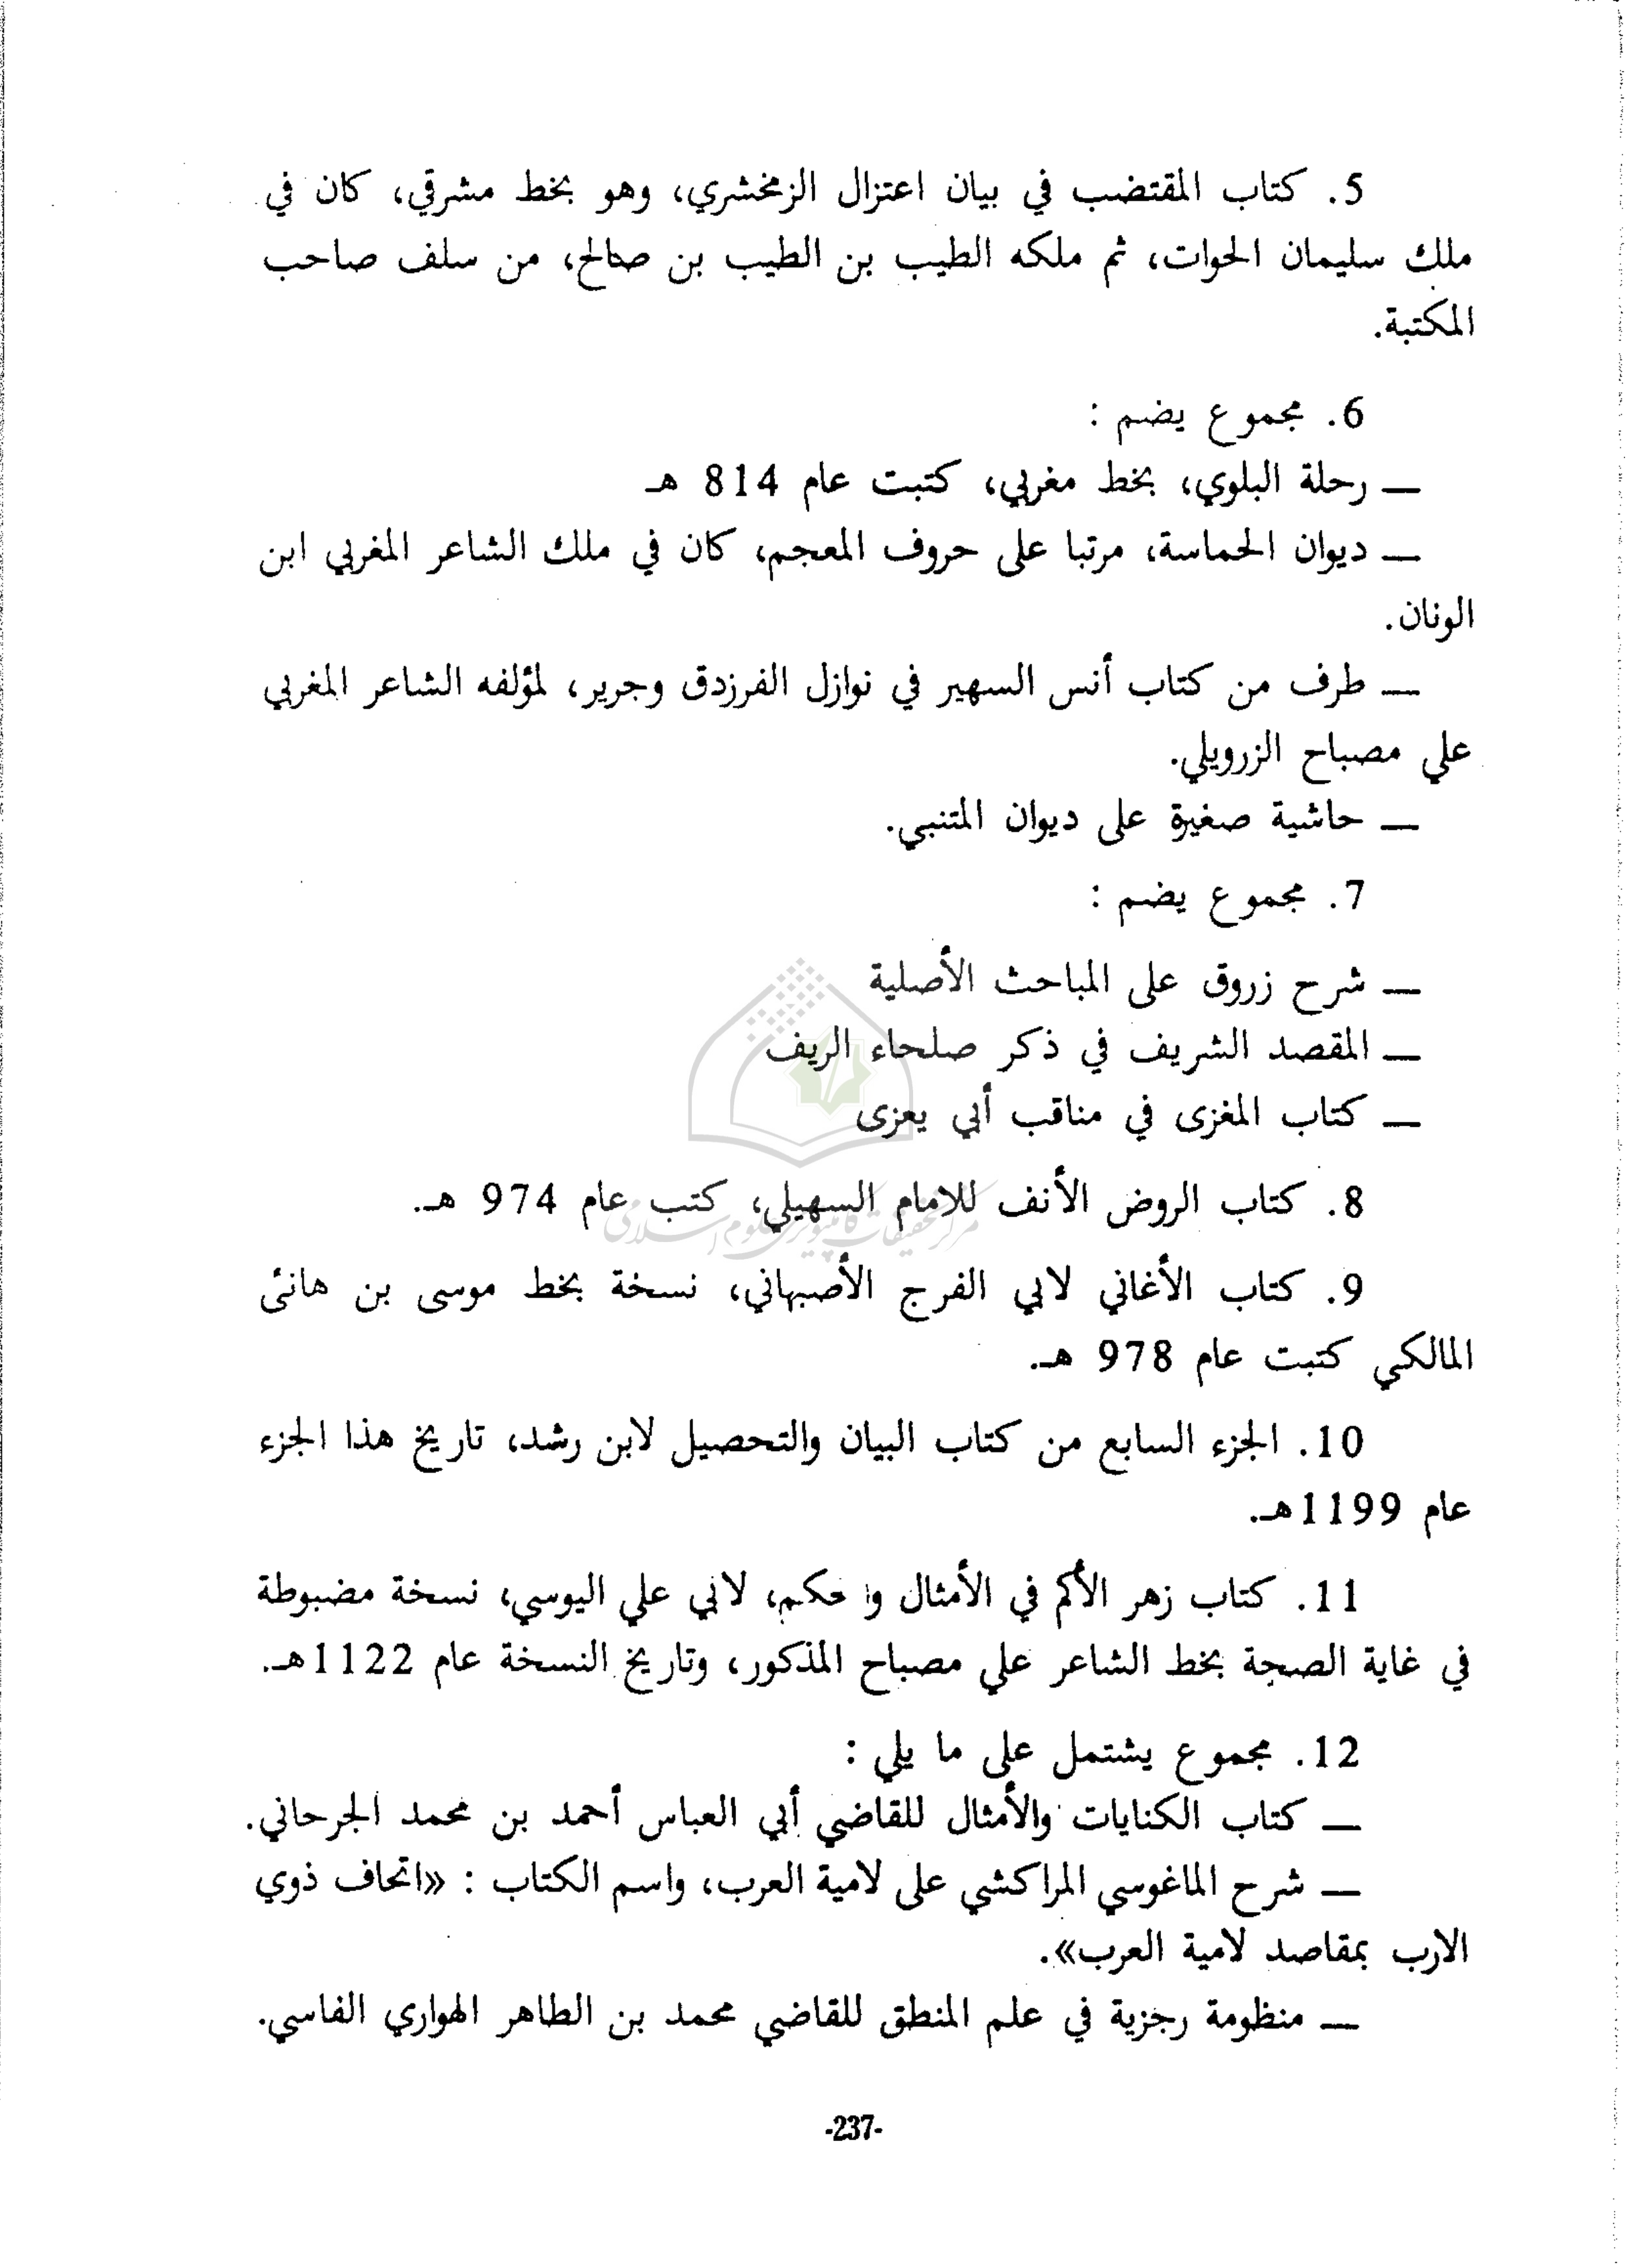 5. كتاب المقتضب في بيان اعتزال الزمخشري، وهو بخط مشرقي، كان في
ملك سليمان الحوات، ثم ملكه الطيب بن الطيب بن صالح، من سلف صاحب
المكتبة.
6. مجموع يضم :
— رحلة البلوي، بخط مغربي، كتبت عام 814 هـ
— ديوان الحماسة، مرتبا على حروف المعجم، كان في ملك الشاعر المغربي ابن
الونان.
— طرف من كتاب أنس السهير في نوازل الفرزدق وجرير، لمؤلفه الشاعر المغربي
علي مصباح الزرويلي.
— حاشية صغيرة على ديوان المتنبي.
7. مجموع يضم :
— شرح زروق على المباحث الأصلية
— المقصد الشريف في ذكر صلحاء الريف
— كتاب المغزى في مناقب أبي يعزى
8. كتاب الروض الأنف للامام السهيلي، كتب عام 974 هـ.
مركز تحقیقات کامپیوتری علوم اسلامی
9. كتاب الأغاني لابي الفرج الأصبهاني، نسخة بخط موسى بن هانئ
المالكي كتبت عام 978 هـ.
10. الجزء السابع من كتاب البيان والتحصيل لابن رشد، تاريخ هذا الجزء
عام 1199هـ.
11. كتاب زهر الأكم في الأمثال وا حكم، لابي علي اليوسي، نسخة مضبوطة
في غاية الصحة بخط الشاعر علي مصباح المذكور، وتاريخ النسخة عام 1122هـ.
12. مجموع يشتمل على ما يلي :
— كتاب الكنايات والأمثال للقاضي أبي العباس أحمد بن محمد الجرحاني.
— شرح الماغوسي المراكشي على لامية العرب، واسم الكتاب : «اتحاف ذوي
الارب بمقاصد لامية العرب».
— منظومة رجزية في علم المنطق للقاضي محمد بن الطاهر الهواري الفاسي.
-237-